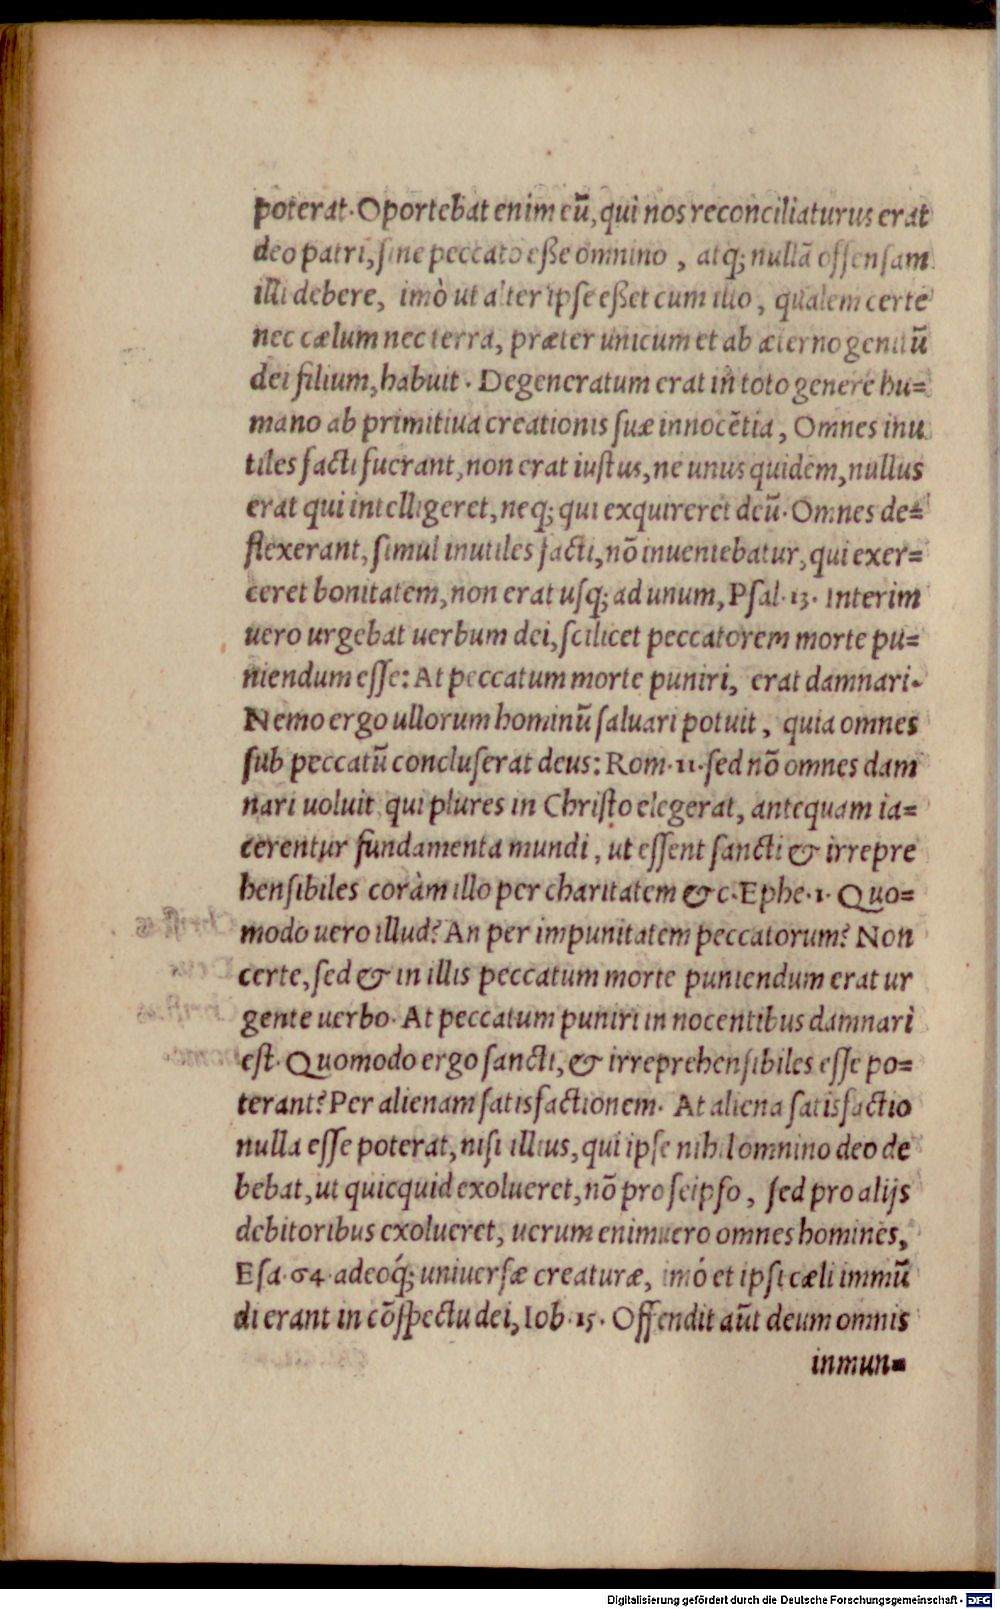 poterat. Oportebat enim eū, qui nos reconciliaturus erat
deo patri, sine peccato eße omnino, atq; nullā offensam
illi debere, imò ut alter ipse eßet cum illo, qualem certe
nec cælum nec terra, præter unicum et ab æterno genitū
dei filium, habuit. Degeneratum erat in toto genere hu=
mano ab primitiua creationis suæ innocētia, Omnes inu
tiles facti fuerant, non erat iustus, ne unus quidem, nullus
erat qui intelligeret, neq; qui exquireret deū. Omnes de=
flexerant, simul inutiles facti, nō inueniebatur, qui exer=
ceret bonitatem, non erat usq; ad unum, Psal. 13. Interim
uero urgebat uerbum dei, scilicet peccatorem morte pu=
niendum esse: At peccatum morte puniri, erat damnari.
Nemo ergo ullorum hominū saluari potuit, quia omnes
sub peccatū concluserat deus: Rom. 11. sed nō omnes dam
nari uoluit, qui plures in Christo elegerat, antequam ia=
cerentur fundamenta mundi, ut essent sancti & irrepre
hensibiles coràm illo per charitatem & c. Ephe. 1. Quo=
modo uero illud? An per impunitatem peccatorum? Non
certe, sed & in illis peccatum morte puniendum erat ur
gente uerbo. At peccatum puniri in nocentibus damnari
est. Quomodo ergo sancti, & irreprehensibiles esse po=
terant? Per alienam satisfactionem. At aliena satisfactio
nulla esse poterat, nisi illius, qui ipse nihil omnino deo de
bebat, ut quicquid exolueret, nō pro seipso, sed pro alijs
debitoribus exolueret, uerum enimuero omnes homines,
Esa. 64. adeoq́; uniuersæ creaturæ, imò et ipsi cæli immū
di erant in cōspectu dei, Iob. 15. Offendit aūt deum omnis
inmun=
Digitalisierung gefördert durch die Deutsche Forschungsgemeinschaft - DFG